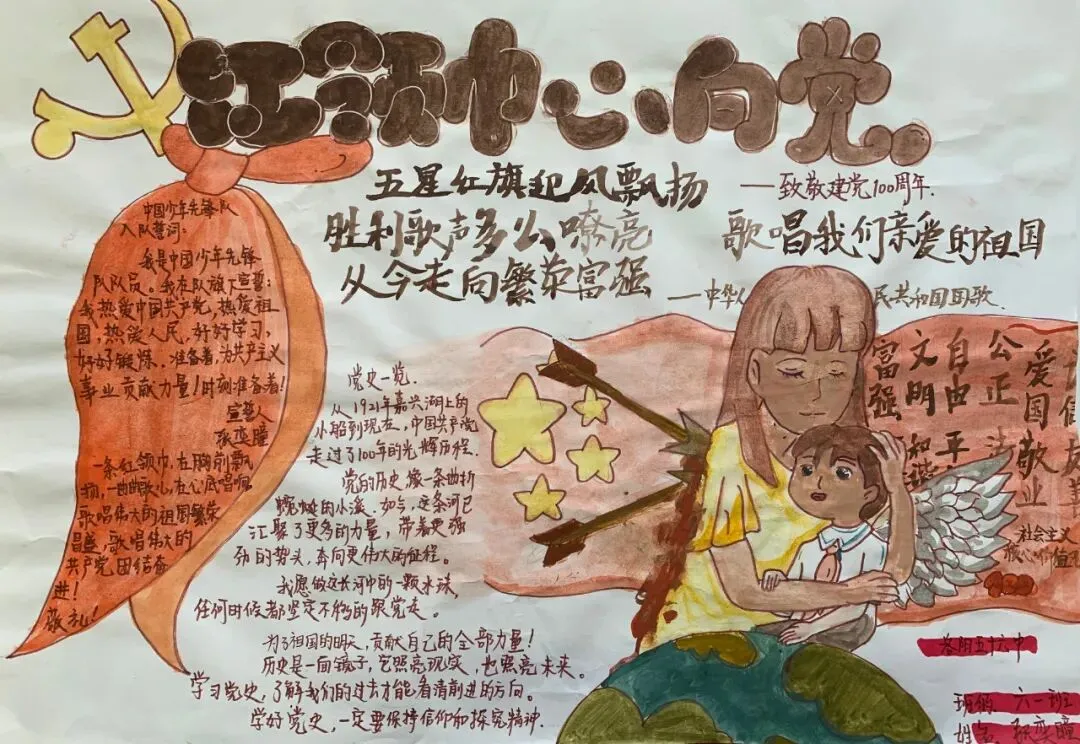 红领巾心向党
五星红旗迎风飘扬
——致敬建党100周年.
胜利歌声多么嘹亮
歌唱我们亲爱的祖国
从今走向繁荣富强
——中华人
民共和国国歌.
中国少年先锋队
入队誓词:
我是中国少年先锋
队队员。我在队旗下宣誓:
我热爱中国共产党,热爱祖
国,热爱人民,好好学习,
好好锻炼,准备着,为共产主义
事业贡献力量!时刻准备着!
宣誓人
一条红领巾,在胸前飘
扬,一曲曲歌儿在心底唱响。
歌唱伟大的祖国繁荣
昌盛,歌唱伟大的
共产党团结奋
进!
敬礼!
党史一览.
从1921年嘉兴湖上的
小船到现在,中国共产党
走过了100年的光辉历程.
党的历史像一条曲折
蜿蜒的小溪.如今,这条河已
汇聚了更多的力量,带着更强
劲的势头,奔向更伟大的征程。
我愿做这长河中的一颗水珠,
任何时候都坚定不移的跟党走。
为了祖国的明天,贡献自己的全部力量!
历史是一面镜子,它照亮现实,也照亮未来。
学习党史,了解我们的过去才能看清前进的方向。
学好党史,一定要保持信仰和探究精神.
富强
文明
和谐
自由
平
公正
法
爱国
敬业
信
友善
社会主义
核心价值
洛阳五十六中
班级 六一班
姓名